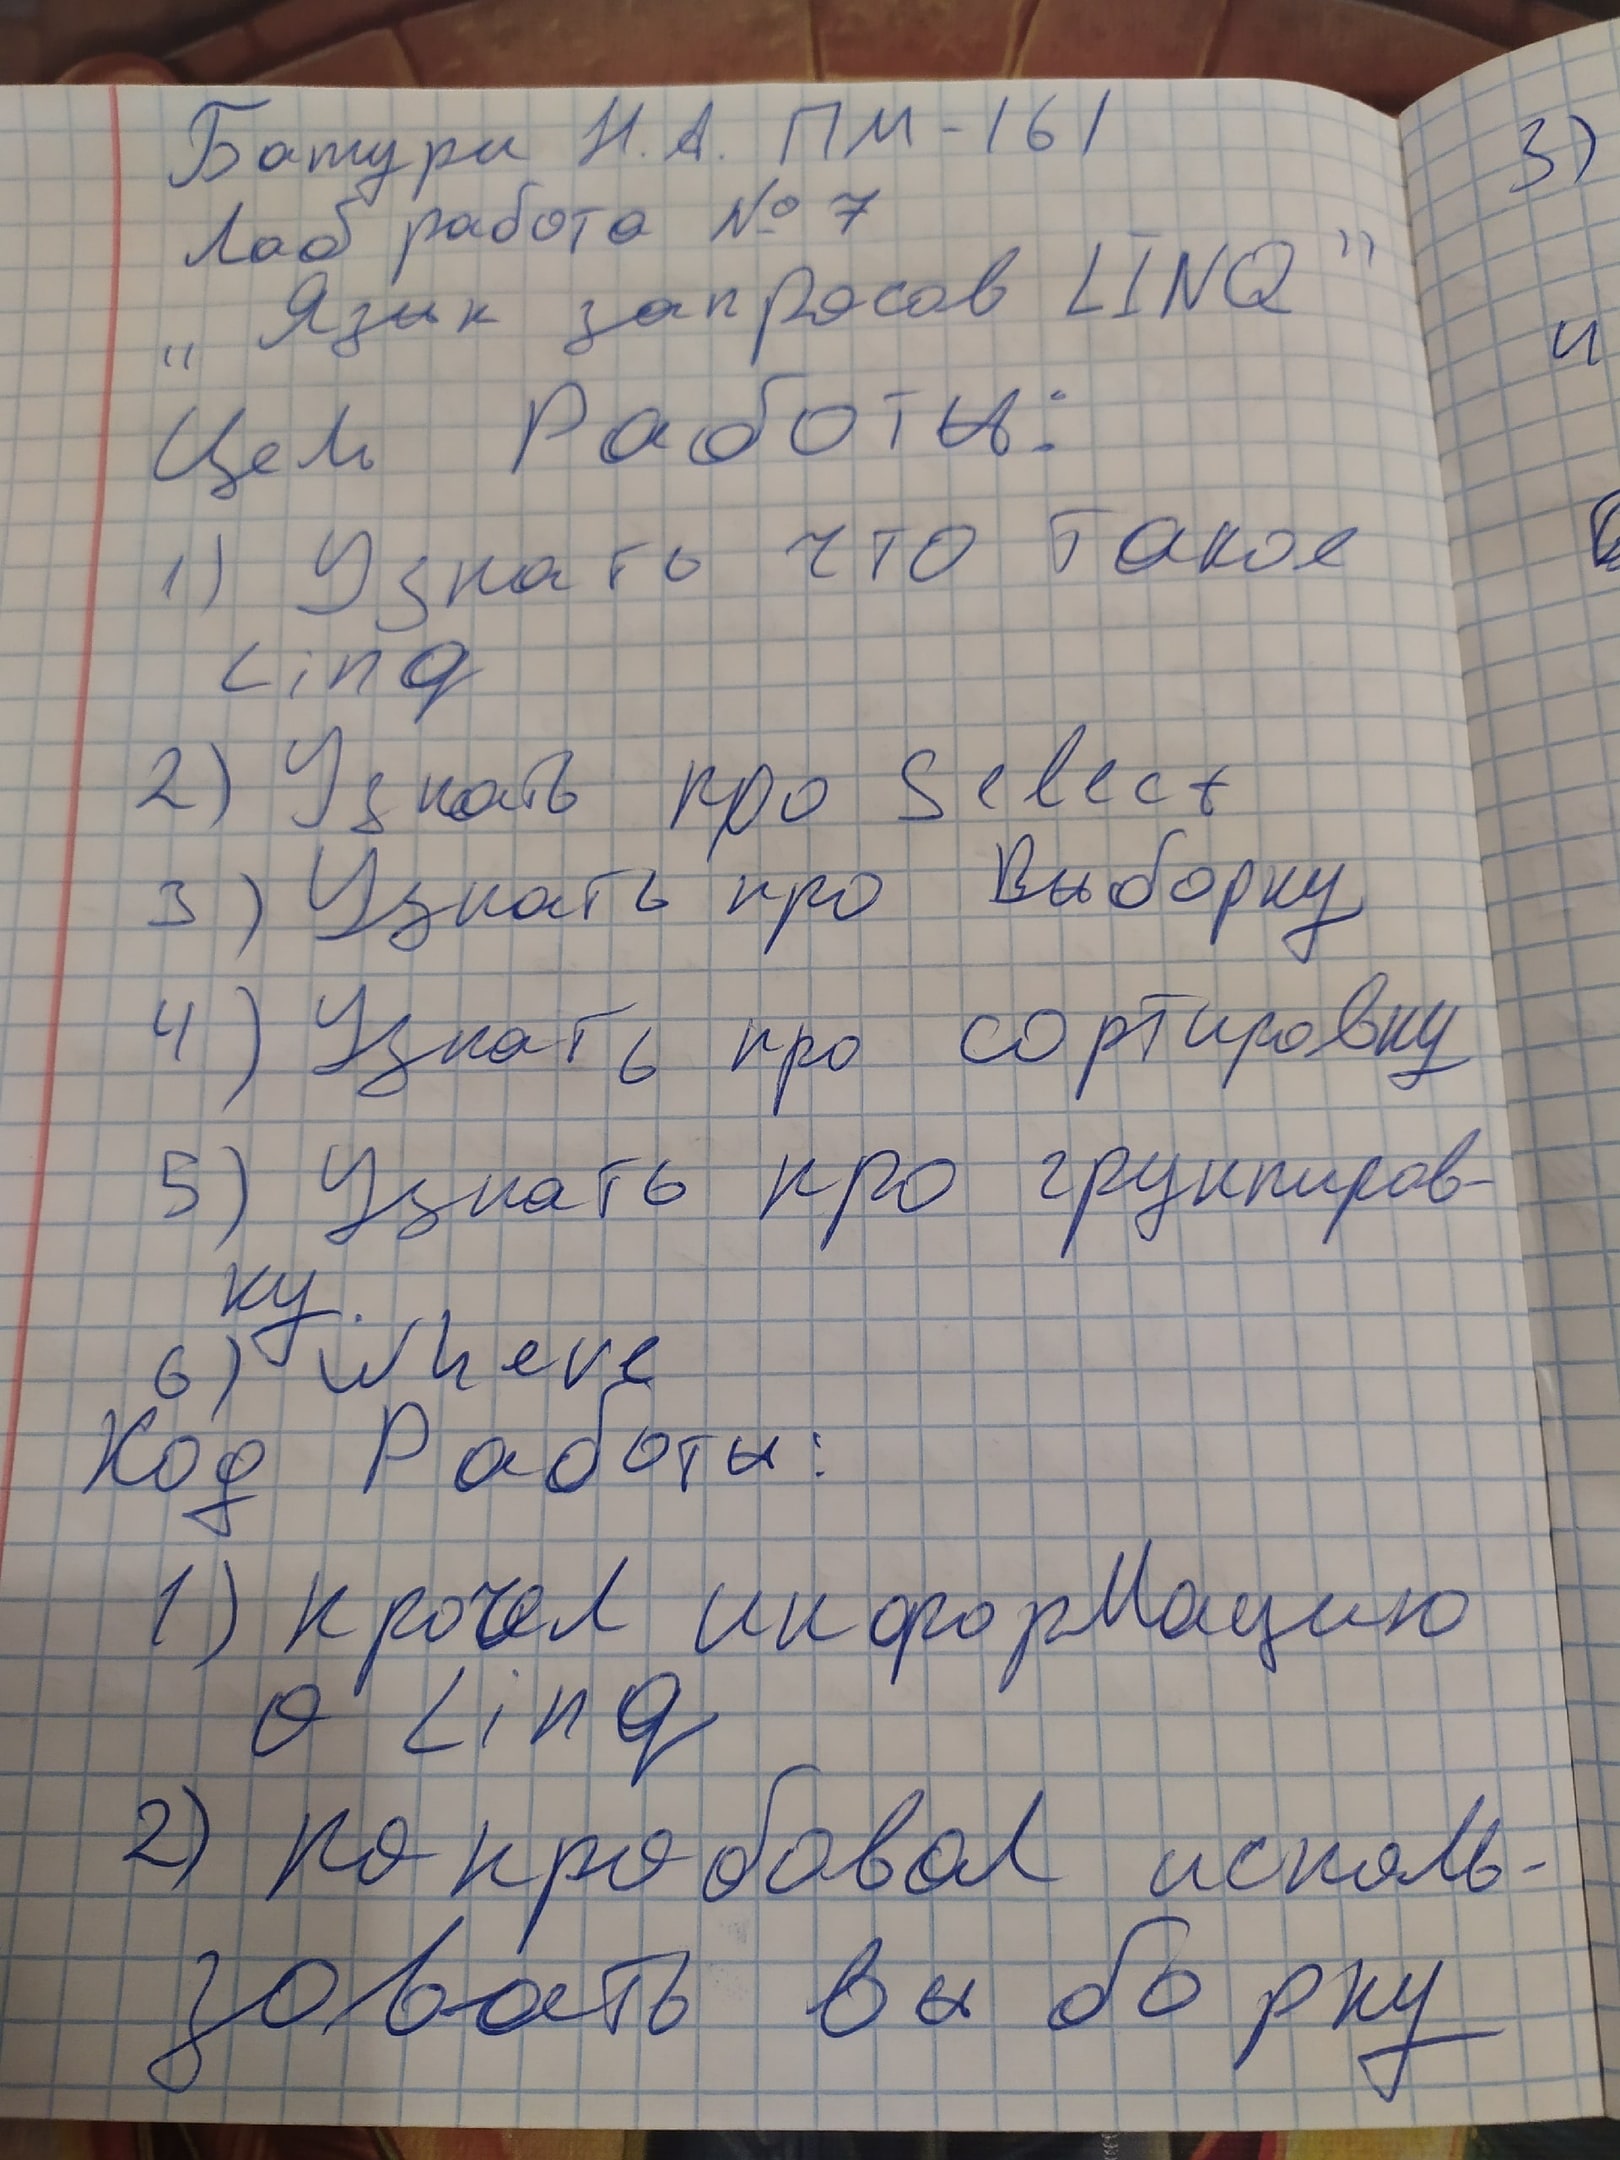 Батури Н.А. ПМ-161
Лаб работа № 7
"Язык запросов LINQ"
Цель Работы:
1) Узнать что такое
Linq
2) Узнать про Select
3) Узнать про Выборку
4) Узнать про сортировку
5) Узнать про группиров-
ку.
6) Where
Ход Работы:
1) прочел информацию
о Linq
2) попробовал исполь-
зовать выборку
3)
и